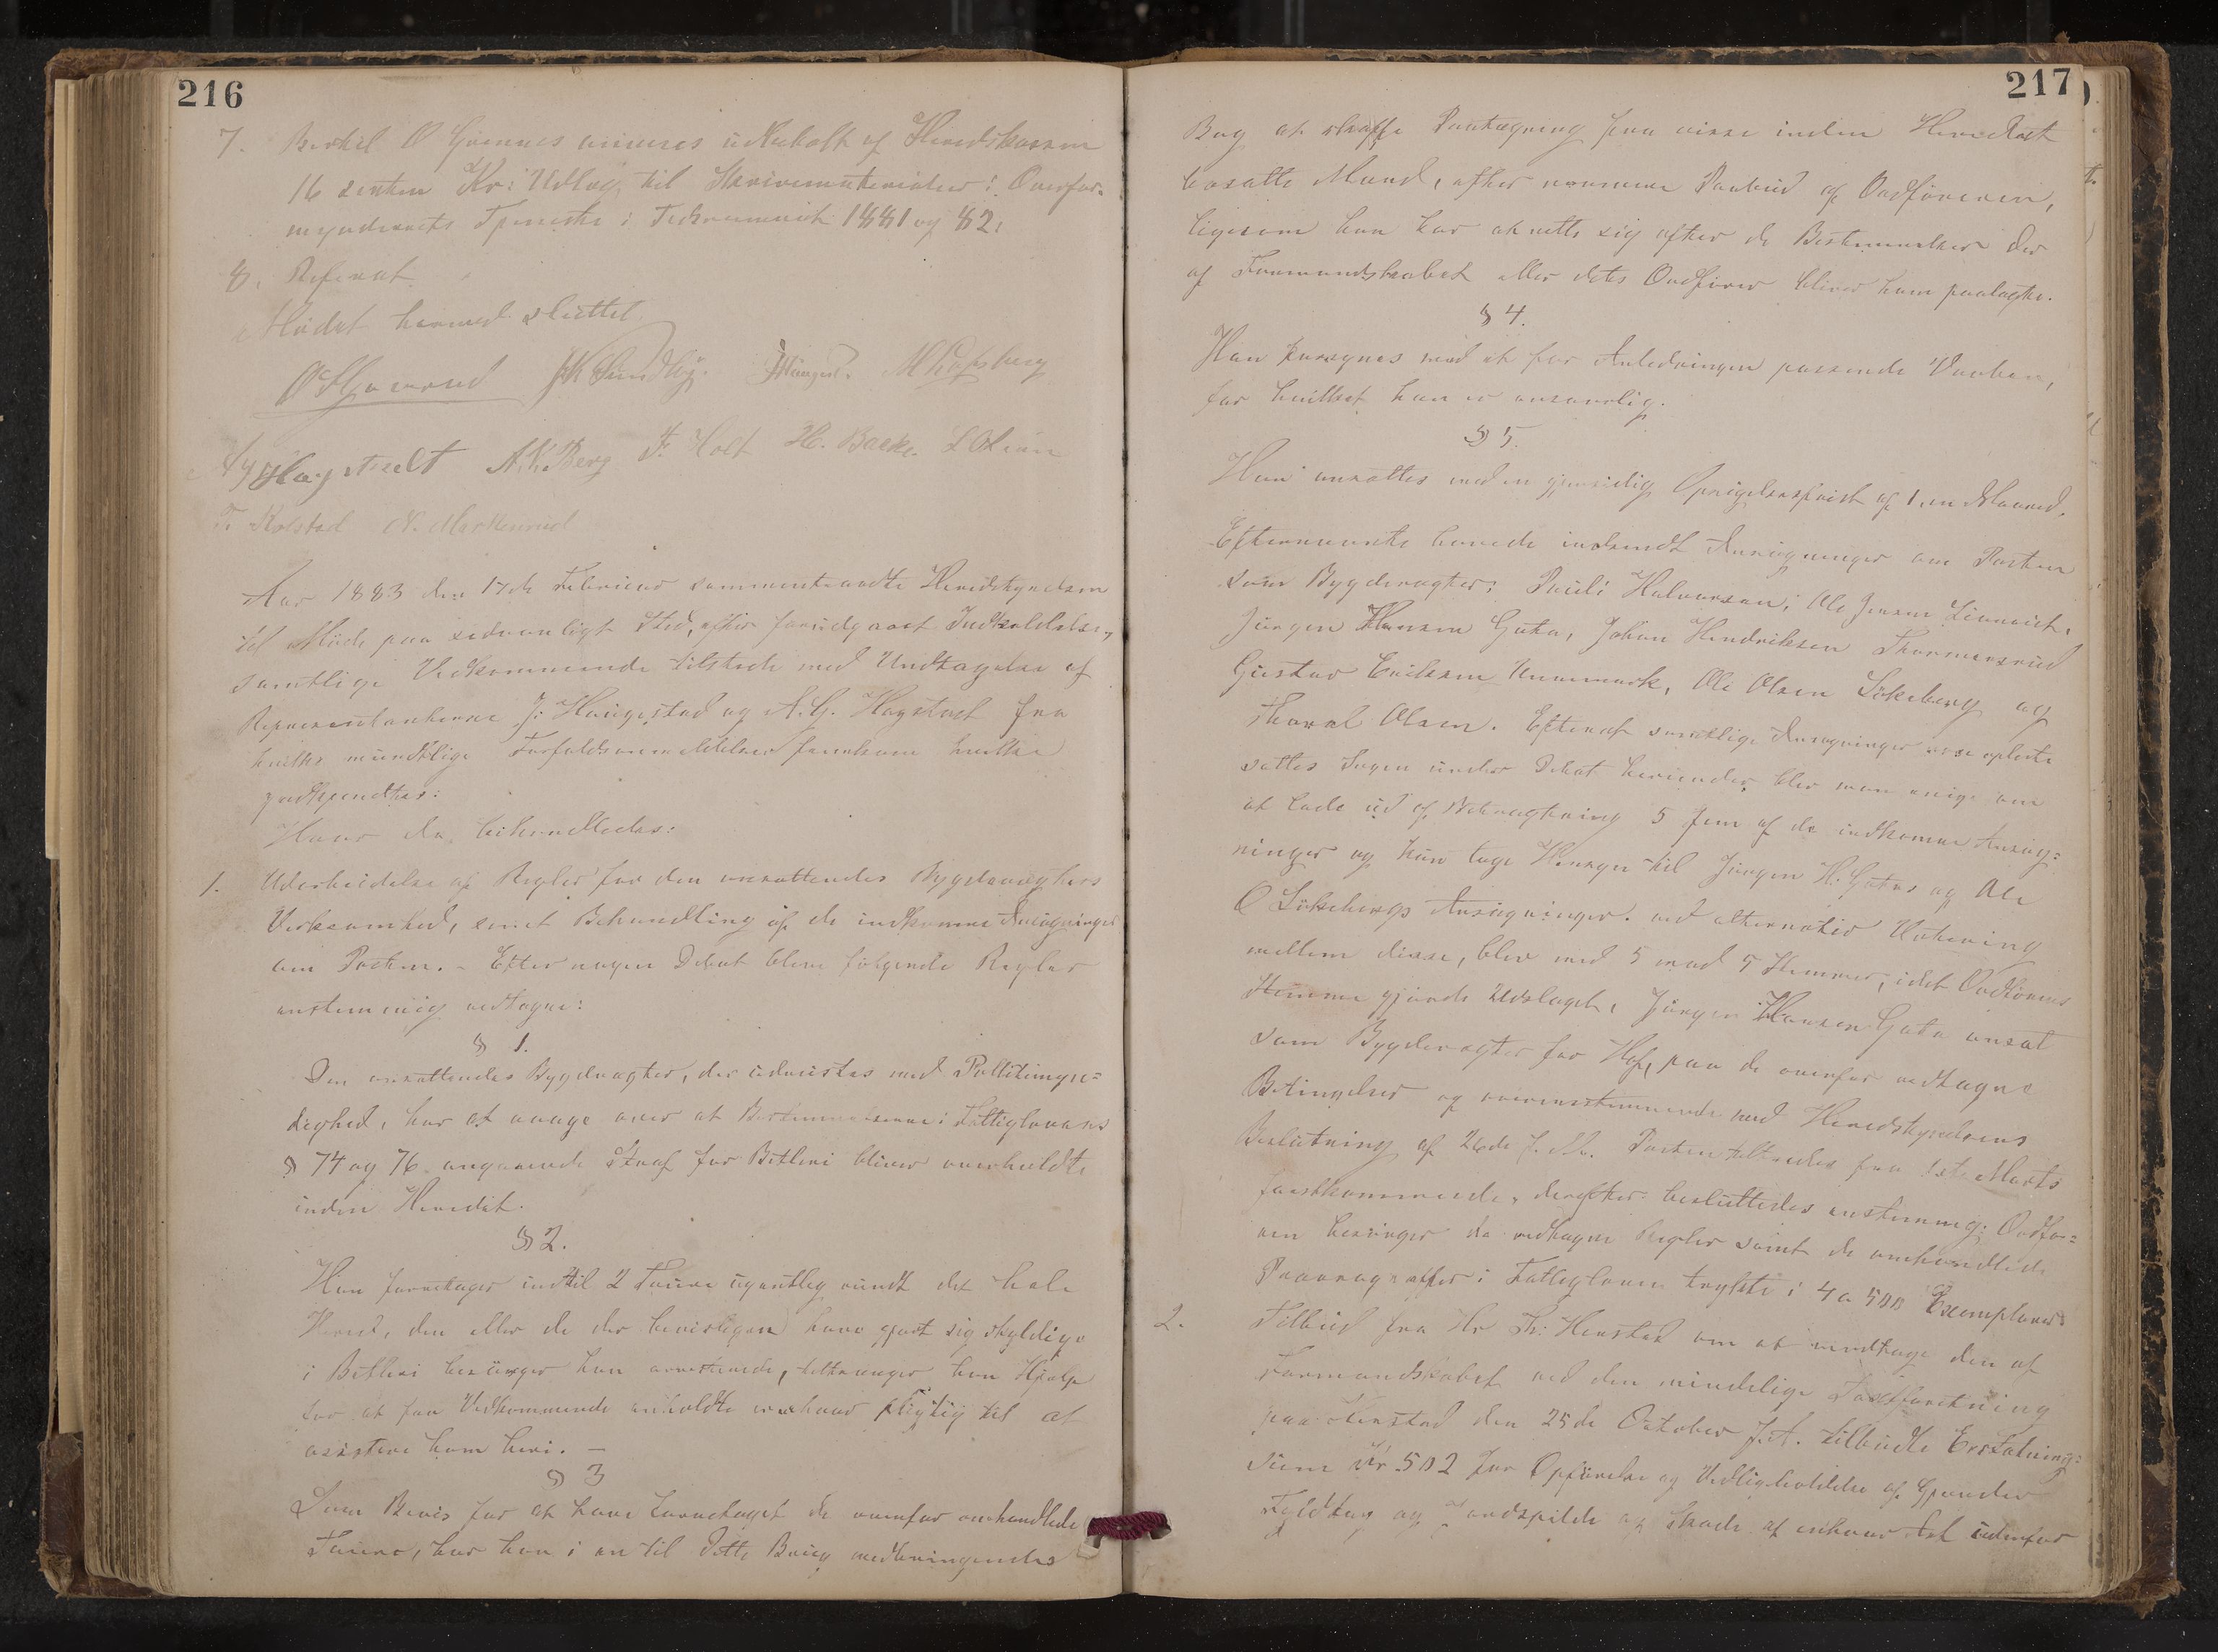 216
7. Bertil O Grønnes anvises udbetalt af Heredskassen
16 sexten Kr: Udlæg til Skrivematerialier i Overfor-
mynderiets Tjeneste i Tidsrummet 1881 og 82.
8. Referat.
Mødet hermed sluttet
J K Sundby.
A. K. Berg F. Holt H. Backe.
T. Kolstad N. Markerud
Aar 1883 den 17de Februar sammentraadte Heredstyrelsen
til Møde paa sedvanligt Sted, efter forudgaaet Indkaldelse,
samtlige Vedkommende tilstede med Undtagelse af
Representanterne J. Haugestad og A. G. Hagstad fra
hvilke mundtlige Forfaldsanmeldelser fremkom hvilke
godkjendtes:
Hvor da behandledes:
1. Udarbeidelse af Regler for den ansættendes Bygdevægters
Virksomhed, samt Behandling af de indkomne Ansøgninger
om Posten. - Efter nogen Debat bleve følgende Regler
enstemmig vedtagne:
§ 1.
Den ansættendes Bygdevagter, der udrustes med Politimyn=
dighed, har at vaage over at Bestemmelserne i Fattiglovens
§ 74 og 76 angaaende Straf for Betleri bliver overholdte
inden Heredet.
§ 2.
Han foretager indtil 2 Toure ugentlig rundt det hele
Hered, den eller de der beviseligen have gjort sig skyldige
i Betleri besørger han arresterede, tiltrænger han Hjælp
for at faa Vedkommende anholdte er enhver pligtig til at
assistere ham heri. -
§ 3
Som Bevis for at have foretaget de ovenfor omhandlede
Toure, har han i en til Dette Brug medbringendes
217
Bog at skaffe Paategning fra visse inden Heredet
bosatte Mænd, efter nærmere Paabud af Ordføreren,
ligesom han har at rette sig efter de Bestemmelser der
af Formandskabet eller dets Ordfører bliver ham paalagte.
§ 4.
Han forsynes med et for Anledningen passende Vaaben,
for hvilket han er ansvarlig.
§ 5.
Han ansættes med en gjensidig Opsigelsesfrist af 1 en Maaned.
Efternævnte havde indsendt Ansøgninger om Posten
som Bygdevagter: Pauli Halvorsen, Ole Jensen
Jørgen Hansen Gutu, Johan Hendriksen Thormersrud
Gustav Eriksen Unnemark, Ole Olsen Sökeberg og
Thorval Olsen. Efterat samtlige Ansøgninger vare oplæste
sattes Sagen under Debat herunder blev man enige om
at lade ud af Betragtning 5 fem af de indkomne Ansøg=
ninger og kun tage Hensyn til Jørgen H. Gutus og Ole
O Sökebergs Ansøgninger. ved alternativ Votering
mellem disse, blev med 5 mod 5 Stemmer, idet Ordførerens
Stemme gjorde Udslaget, Jørgen Hansen Gutu ansat
som Bygdevagter for Hof, paa de ovenfor vedtagne
Betingelser og overensstemmende med Heredstyrelsens
Beslutning af 26de f. M. Posten tiltrædes fra 1ste Marts
førstkommende, derefter besluttedes enstemmig: Ordfø=
ren besørger de vedtagne Regler samt de omhandlede
Paragraffer i Fattigloven trykte i 4 a 500 Exemplarer
2. Tilbud fra Hr Th: Henstad om at modtage den af
Formandskabet ved den mindelige Taxtforretning
paa Henstad den 25de October f. A. tilbudte Erstatnings-
Sum Kr 502 for Opførelse og Vedligeholdelse af Gjerder
Fyldtag og Jordspilde og Skade af enhver Art udenfor